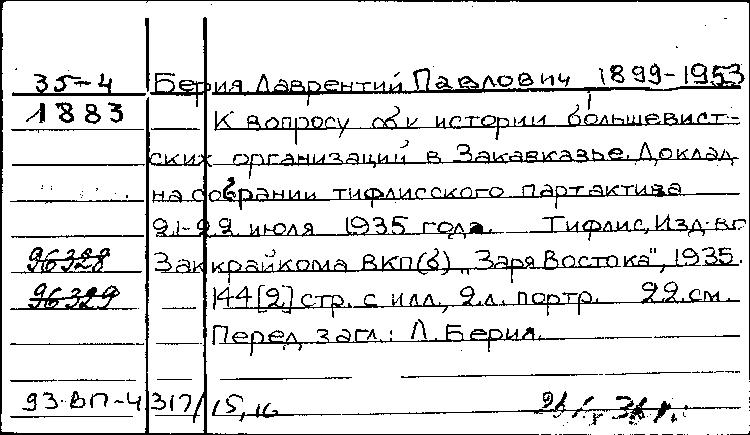 35-4 Берия Лаврентий Павлович 1899-1953
1883 К вопросу об истории большевист-
ских организаций в Закавказье. Доклад
на собрании тифлисского партактива
21-22 июля 1935 года. Тифлис, Изд-во
96328 Заккрайкома ВКП(б) „Заря Востока", 1935.
96329 144[2] стр. с илл., 2 л. портр. 22 см.
Перед загл.: Л. Берия.
93-ВП-4 317/15,16